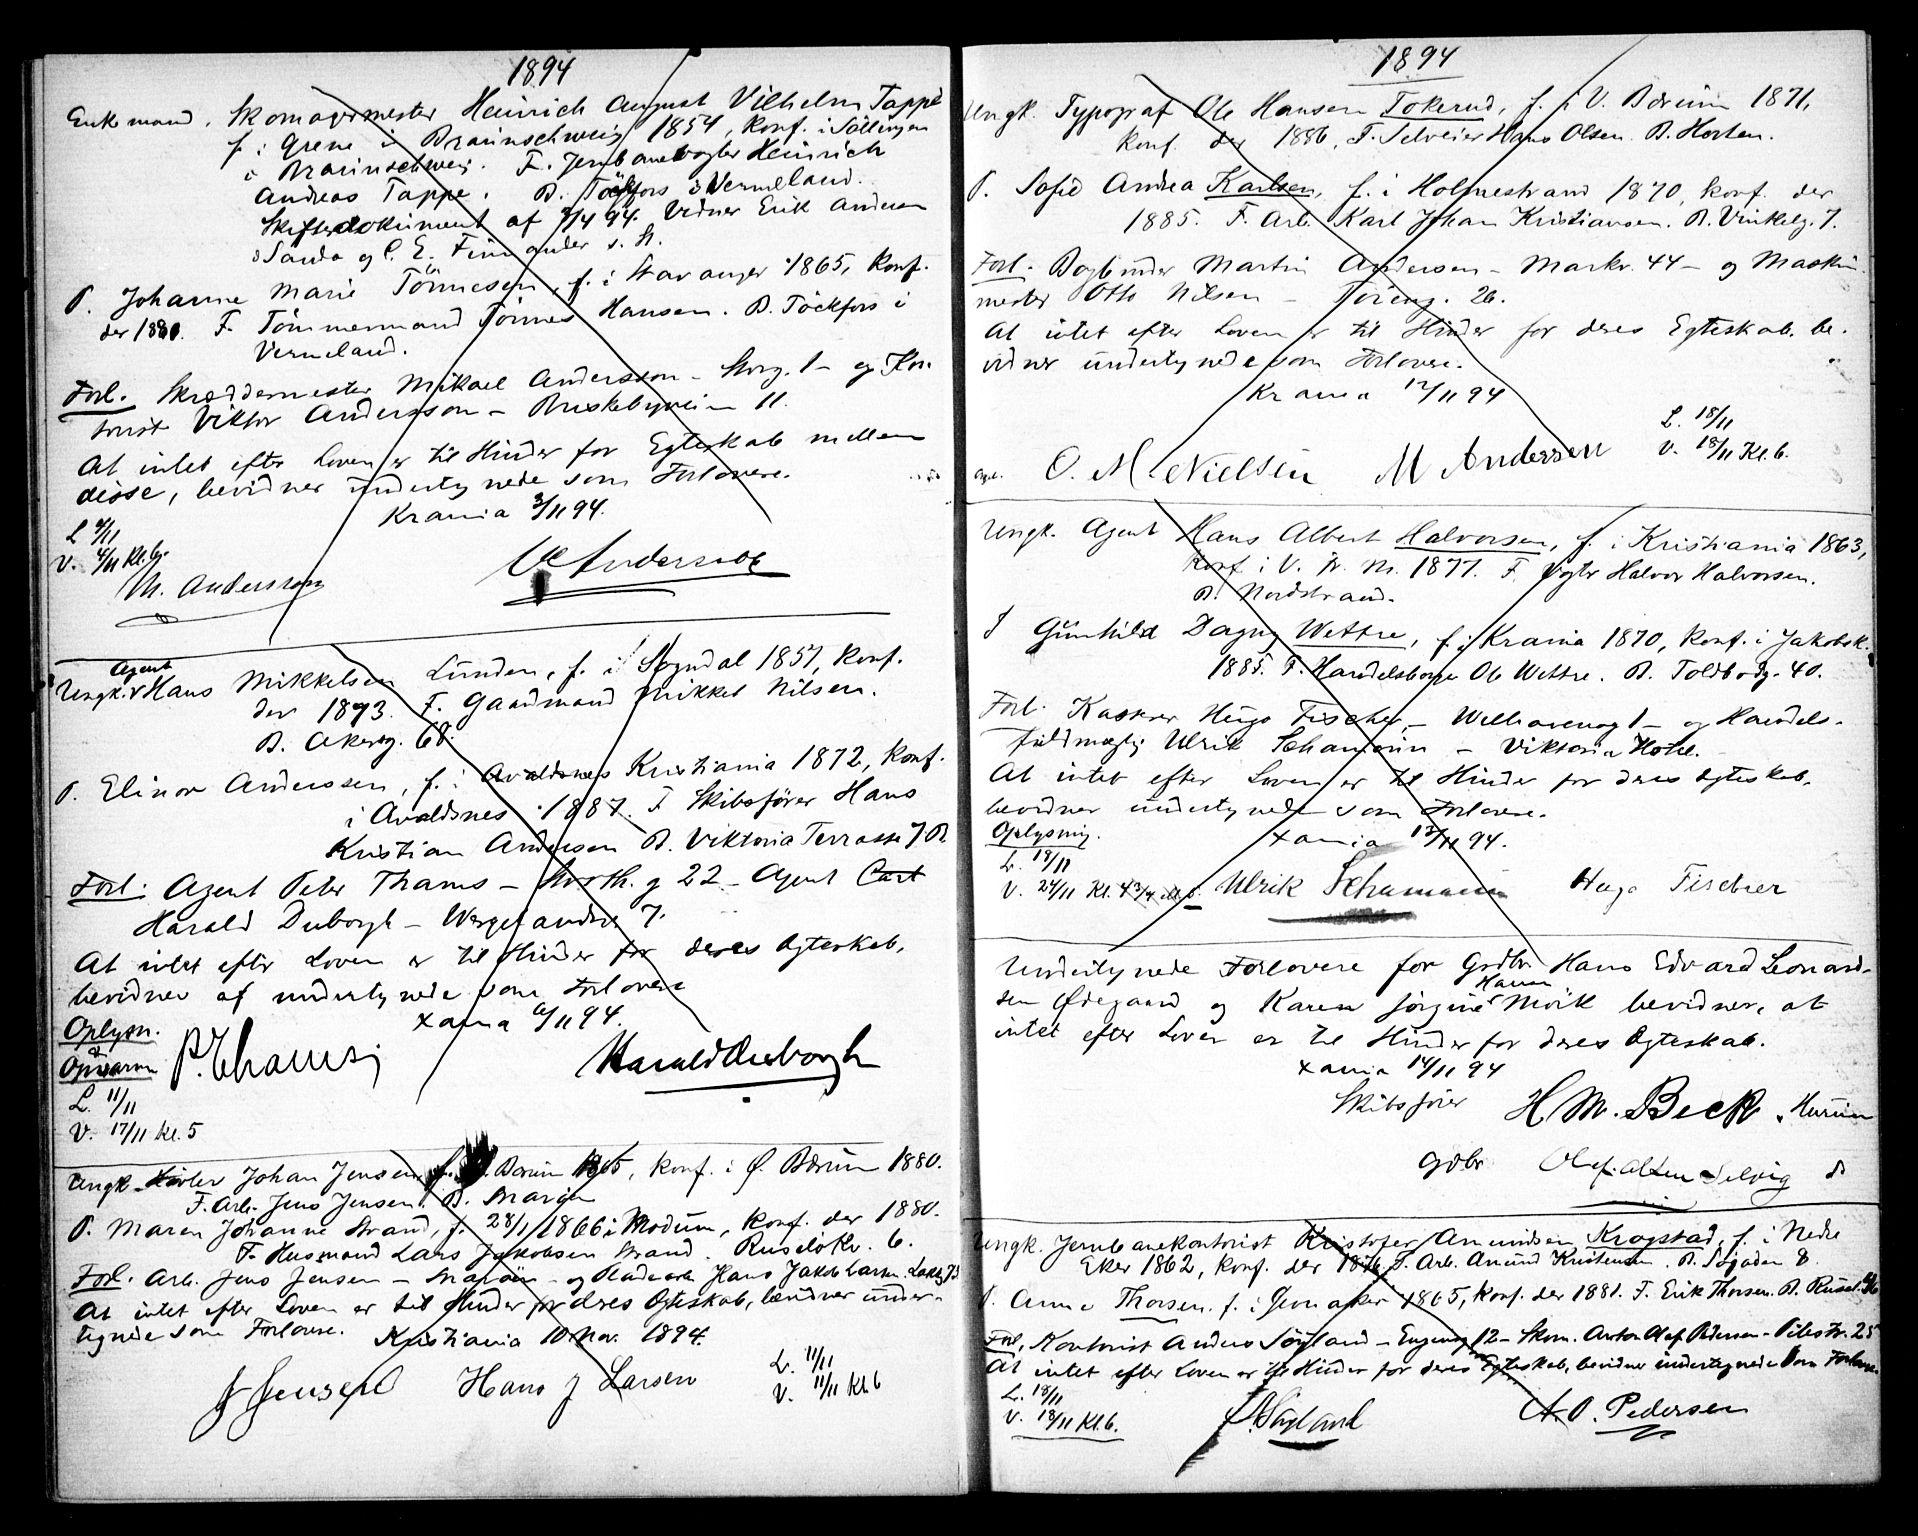 1894
Enkemand. Skomagermester Heinrich August Vilhelm Tappe
f. i Grene i Braunschweig 1854, konf. i Söllingen
i Braunschweig. F. Jernbanevogter Heinrich
Andreas Tappe. B. Töckfors i Vermeland.
Skiftedokument af 94. Vidner Erik Andersen
Sanda og C. E. s. st.
P. Johanne Marie Tönnesen, f. i Stavanger 1865, konf.
der 1880. F. Tömmermand Tönnes Hansen. B. Töckfors i
Vermeland.
Forl. Skræddermester Mikael Andersson – Storg. 1 – og Kon-
torist Viktor Andersson – Briskebyveien 11.
At intet efter Loven er til Hinder for Egteskab mellem
disse, bevidner undertegnede som Forlovere.
Krania 3/11 94.
L 4/11
V. 4/11 kl. 6
M. Andersson V Andersson
Agent
Ungk. Hans Mikkelsen Lunden, f. i Sogndal 1857, konf.
der 1873. F. Gaardmand Mikkel Nilsen.
B. Akersg. 68.
P. Elinor Anderssen, f. i Avaldsnes Kristiania 1872, konf.
i Avaldsnes 1887. F. Skibsförer Hans
Kristian Andersen B. Viktoria Terrasse 7 B
Forl: Agent Peter Thams – Storth. g 22 – Agent Carl
Harald Duborgh – Wergelandsv 7.
At intet efter Loven er til Hinder for deres Egteskab,
bevidner af undertegnede som Forlovere
Xania 6/11 94.
Oplysn.
P. Thams Harald Duborgh
L. 11/11
V. 17/11 kl. 5
Ungk. Johan Jensen f. Bærum 1865, konf. i Ø. Bærum 1880.
F. Arb. Jens Jensen. B. Snarøen
P. Maren Johanne Strand, f. 28/1 1866 i Modum, konf. der 1880.
F. Husmand Lars Jakobsen Strand. Ruselökv. 6.
Forl. Arb. Jens Jensen – Snaröen – og Hans Jakob Larsen.
At intet efter Loven er til Hinder for deres Egteskab, bevidner under-
tegnede som Forlovere.
Kristiania 10 Nov. 1894.
J Jensen Hans J Larsen
L. 11/11
V. 11/11 kl. 6
1894
Ungk. Typograf Ole Hansen Tokerud, f. i V. Bærum 1871,
konf. der 1886, F. Selveier Hans Olsen. B. Horten.
P. Sofie Andrea Karlsen, f. i Holmestrand 1870, konf. der
1885. F. Arb. Karl Johan Kristiansen. B. Vinkelg. 7.
Forl. Bogbinder Martin Andersen – Markv. 44 – og Maskin-
mester Otto Nilsen – 26.
At intet efter Loven er til Hinder for deres Egteskab. be-
vidner undertegnede som Forlovere.
Krania 12/11 94
L. 18/11
V. 18/11 Kl. 6.
O. M. Nielsen M Andersen
Ungk. Agent Hans Albert Halvorsen, f. i Kristiania 1863,
konf i V. Fr. M. 1877. F. Halvor Halvorsen.
B. Nordstrand.
P Gunhild Dagny Wettre, f. i Krania 1870, konf. i Jakobsk.
1885. F. Handelsborger Ole Wettre. B. Toldbodg. 40.
Forl. Kasserer Hugo Fischer – Welhavensg 1 – og Handels-
fuldmægtig Ulrik Schumann – Viktoria Hotel.
At intet efter Loven er til Hinder for deres Egteskab,
bevidner undertegnede som Forlovere.
Oplysning.
Xania 13/11 94.
L. 18/11
V. 24/11 Kl. 4 3/4
Ulrik Schumann Hugo Fischer
Undertegnede Forlovere for Grdbr Hans Edvard Leonard-
sen Ødegaard og Karen Jörgine Hansen Movik bevidner, at
intet efter Loven er til Hinder for deres Egteskab.
Xania 14/11 94
Skibsfører H M. Beck, Hurum
Grdbr Olaf Selvig
Ungk. Jernbanekontorist Kristofer Amundsen Krogstad, f. i Nedre
Eker 1862, konf. der 1876 F. Arb. Amund Kristensen. B. 8.
P. Anne Thorsen. f. i 1865, konf. der 1881. F. Erik Thorsen. B.
Forl. Kontorist Anders Söyland – Eugeniag 12 – Skom. Anton Olaf Pedersen – Pilestr. 25
At intet efter Loven er til Hinder for deres Egteskab, bevidner undertegnede som Forlovere
L. 18/11
V. 18/11 kl. 6.
A. Söyland A. O. Pedersen